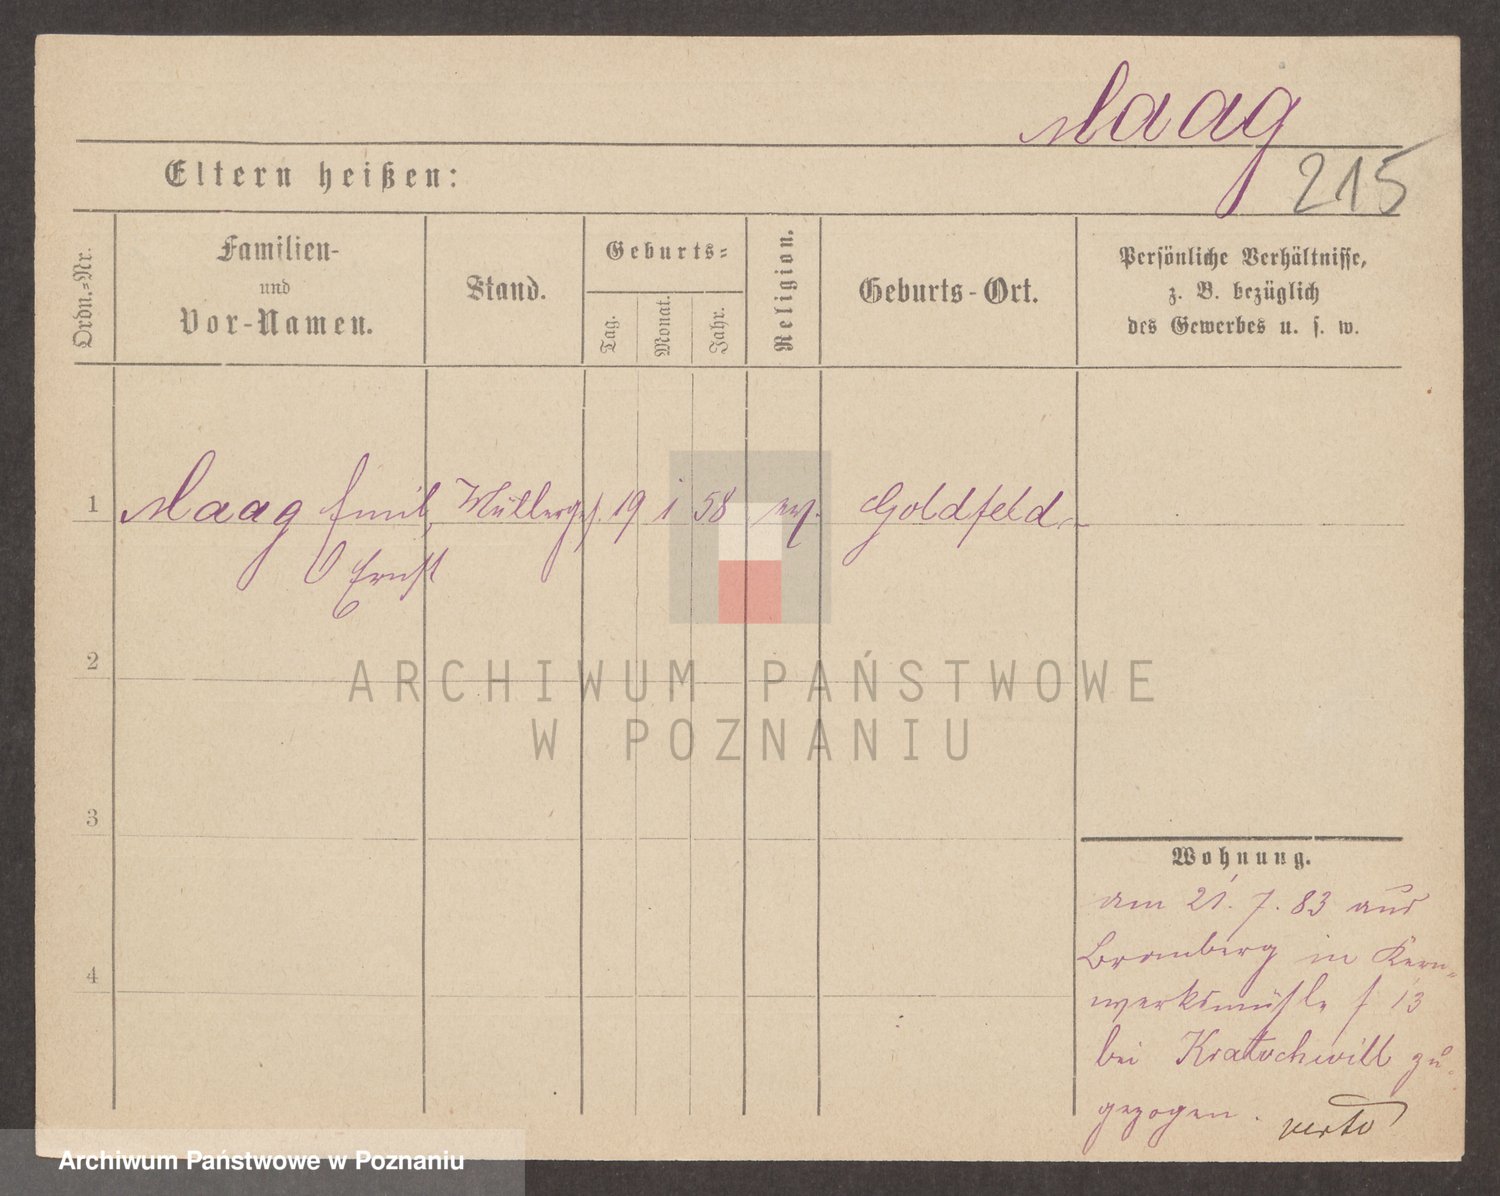 Maag
215
Eltern heißen:
Ordn.=Nr.
Familien-
und
Vor-Namen.
Stand.
Geburts=
Tag.
Monat.
Jahr.
Religion.
Geburts-Ort.
Persönliche Verhältnisse,
z. B. bezüglich
des Gewerbes u. s. w.
1
Maag Emil, Müllerges. 19 1 58 ev. Goldfeld
Ernst
2
ARCHIWUM PAŃSTWOWE
W POZNANIU
3
Wohnung.
am 21. 7. 83 aus
Bromberg in Kern=
werksmühle 13
bei Kratochwill zu=
gezogen.
verto
4
Archiwum Państwowe w Poznaniu